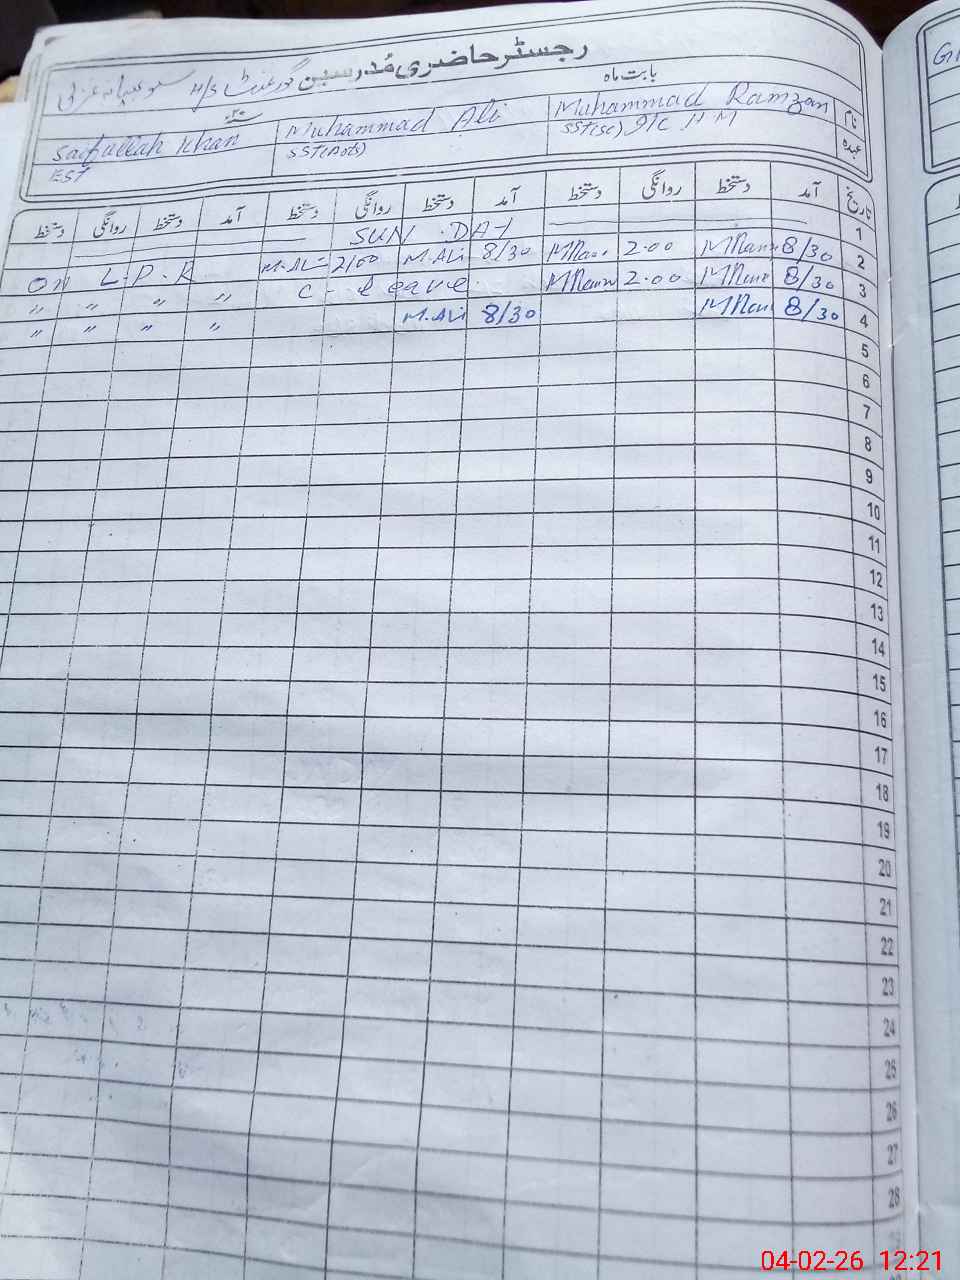 رجسٹر حاضری مُدرسین گورنمنٹ H/S
بابت ماہ
نام Muhammad Ramzan Muhammad Ali Saifullah Khan
عہدہ SST(Sc) I/C H M SST(Arts) EST
تاریخ آمد دستخط روانگی دستخط آمد دستخط روانگی دستخط آمد دستخط روانگی دستخط
1 SUN.DAY
2 8/30 2.00 8/30 M.Ali 2/00 M.Ali On L.P.R
3 8/30 2.00 C-leave " " " "
4 8/30 8/30 M.Ali " " " "
5
6
7
8
9
10
11
12
13
14
15
16
17
18
19
20
21
22
23
24
25
26
27
28
04-02-26 12:21